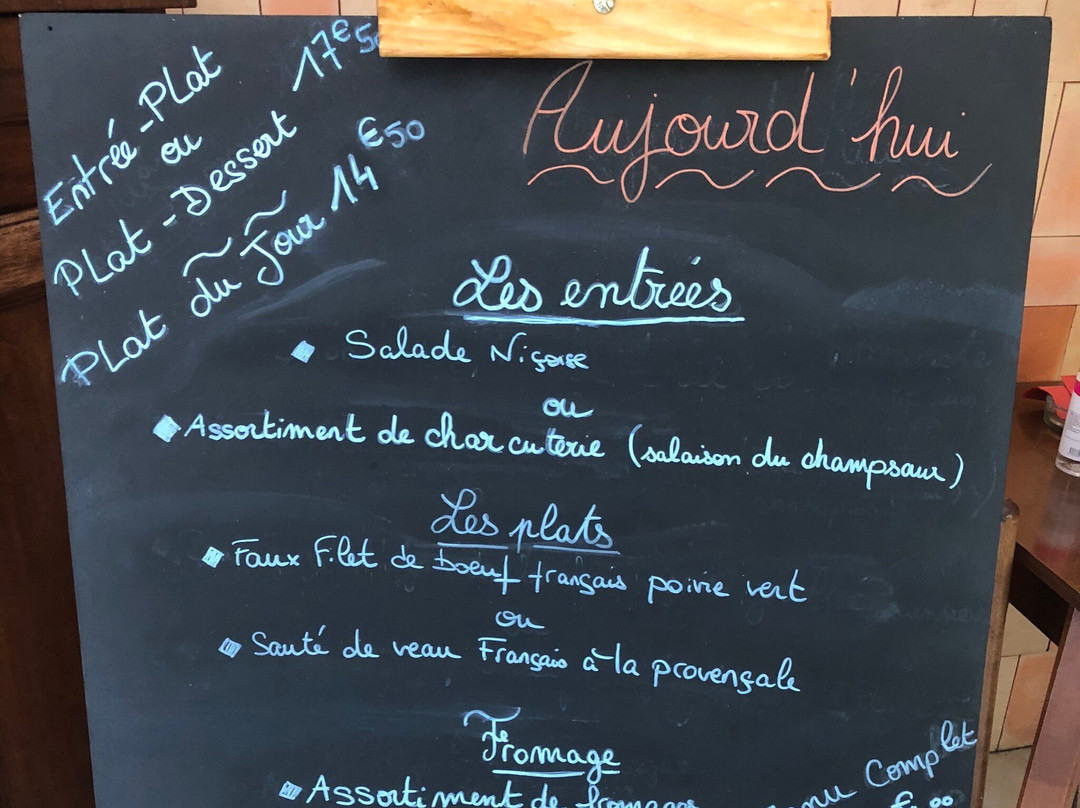 Entrée-Plat
ou
Plat-Dessert 17€50
Plat du Jour 14€50
Aujourd'hui
Les entrées
Salade Niçoise
ou
Assortiment de charcuterie (salaison du champsaur)
Les plats
Faux Filet de boeuf français poivre vert
ou
Sauté de veau Français à la provençale
Fromage
Assortiment de fromages
Complet